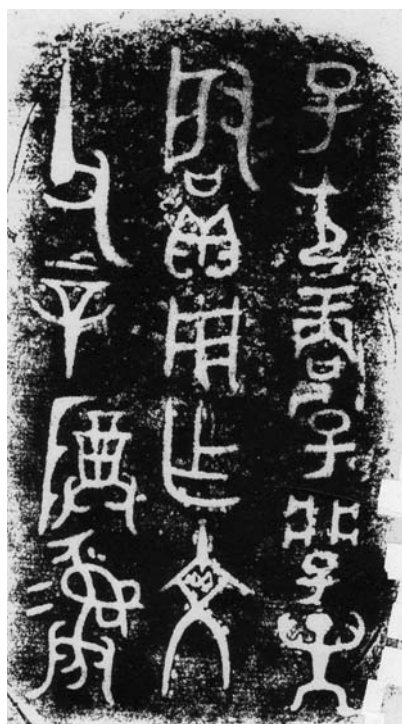 子光商子
啟貝用乍文
父辛尊彝